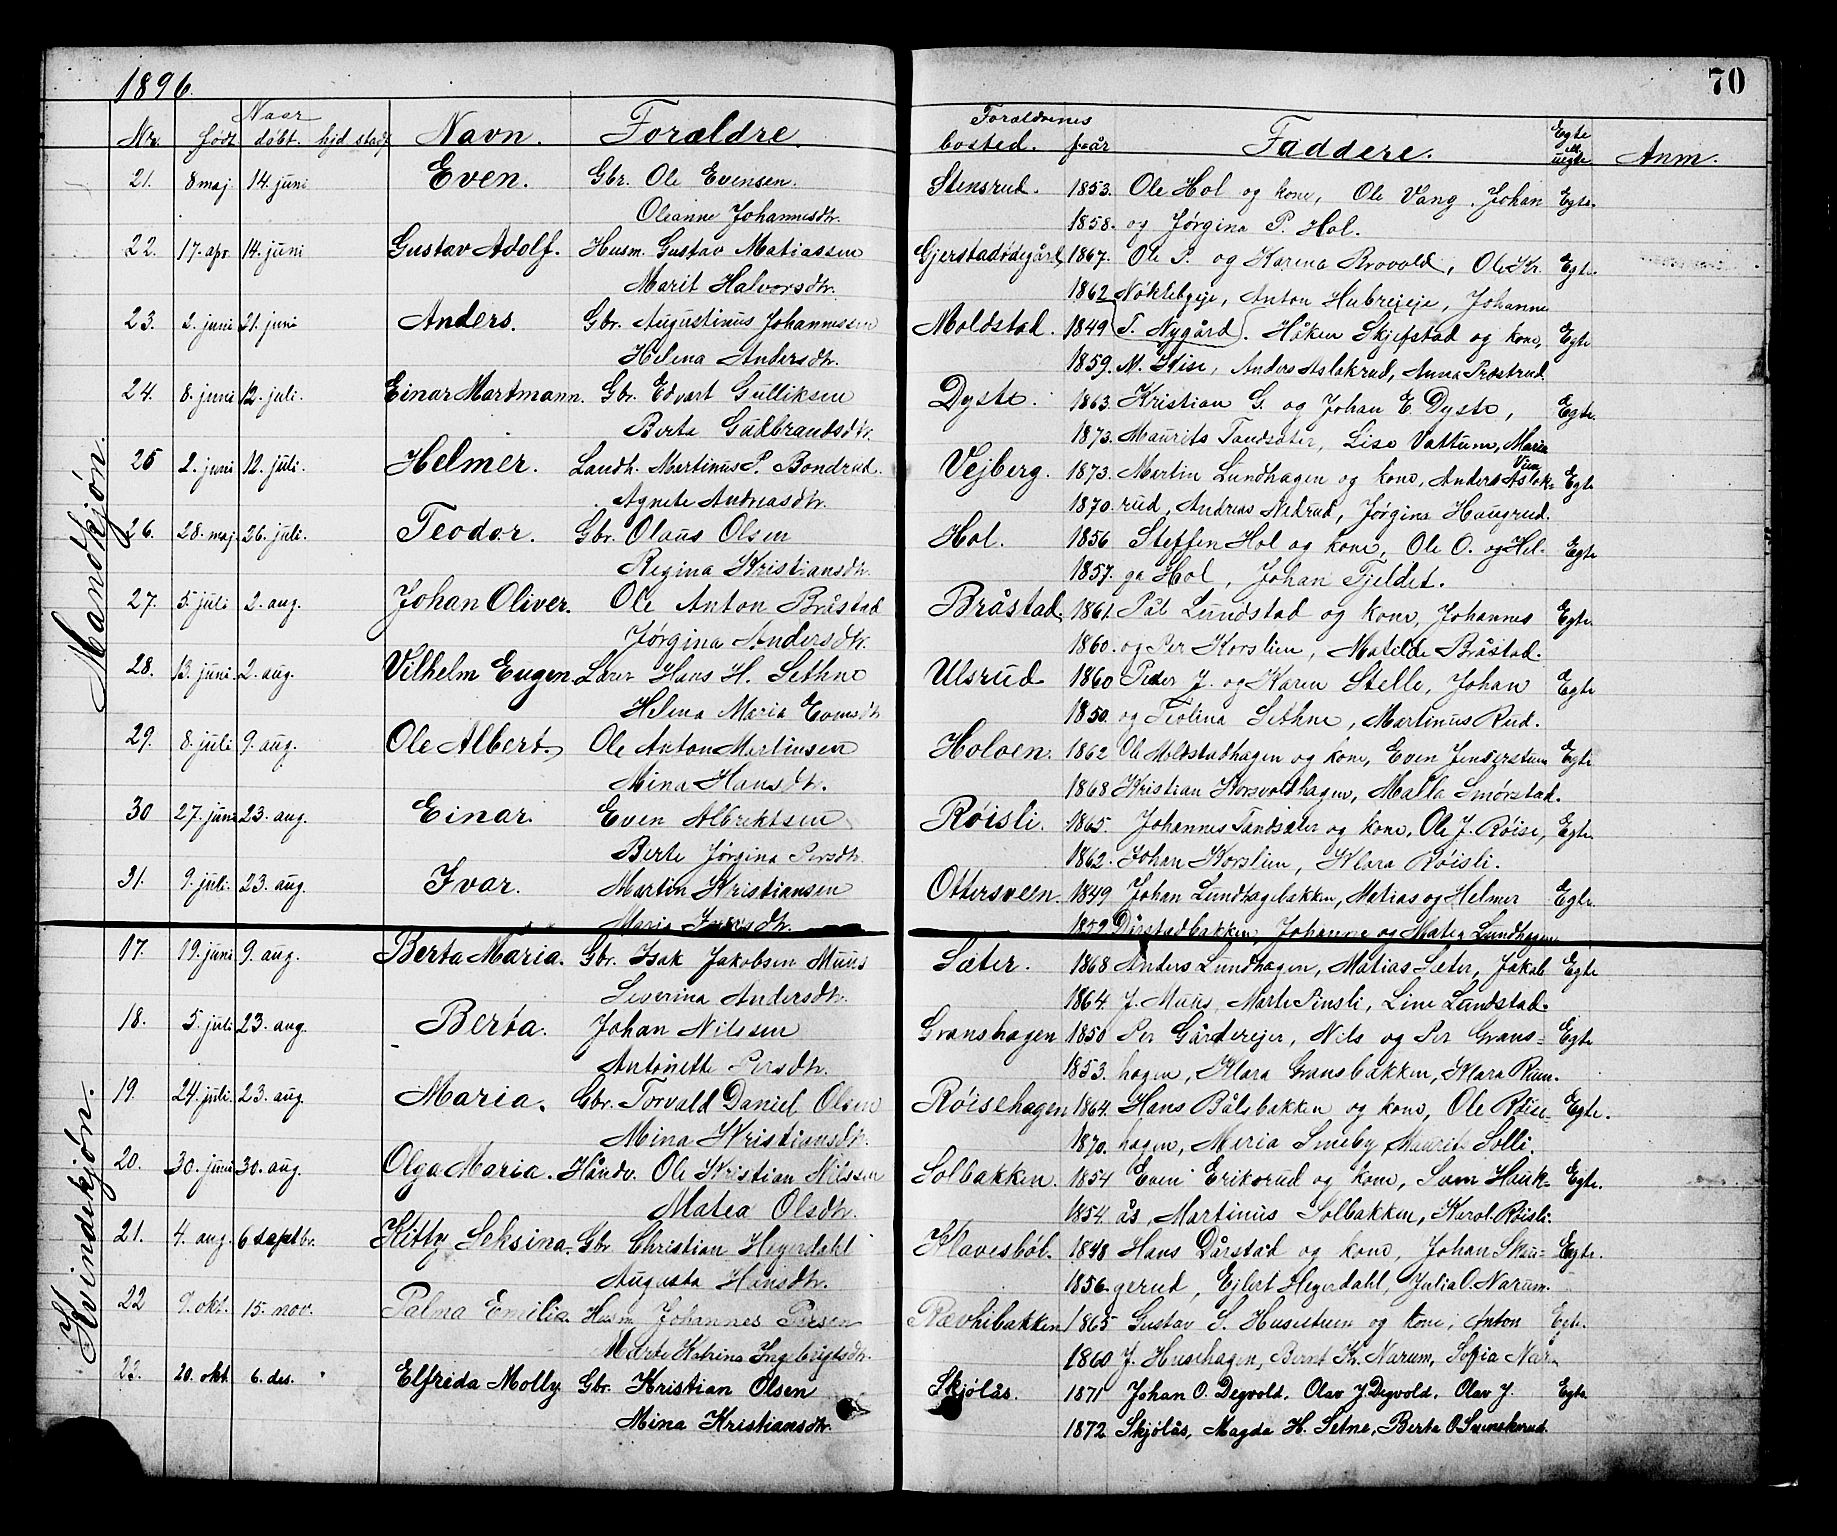 1896.
70
Naar
Forældrenes
Nr. født døbt. hjd stadf Navn. Forældre. bosted. f.år Faddere. Egte el. uegte Anm.
Mandkjøn.
21. 8 maj 14. juni Even. Gbr. Ole Evensen. Stensrud. 1853. Ole Hol og kone, Ole Vang. Johan Egte.
Oleanne Johannesdtr. 1858. og Jørgina P. Hol.
22. 17. apr. 14. juni Gustav Adolf. Husm. Gustav Matiassen Gjerstadødegård 1867. Ole P. og Karina Brovold, Ole Kr. Egte.
Marit Halvorsdtr. 1862 Nøkleby, Anton Johanne
23. 2. juni 21. juni Anders. Gbr. Augustinus Johannessen Moldstad. 1849 T. Nygård. Håken Skjefstad og kone, Egte
Helena Andersdtr. 1859. M. Anders Aslakrud, Anna Præstrud.
24. 8. juni 12. juli. Einar Martmann. Gbr. Edvart Gulliksen Dyste. 1863. Kristian G. og Johan E. Dyste, Egte.
Berta Gudbrandsdtr. 1873. Maurits Tandsæter, Lise Vattum, Maria
25 2. juni 12. juli. Helmer. Landh. Martinus P. Bondrud Vejberg. 1873. Martin Lundhagen og kone, Anders Aslak- Egte
Agnete Andreasdtr. 1870. rud, Andreas Nedrud, Jørgina Haugrud.
26. 28. maj. 26. juli. Teodor. Gbr. Olaus Olsen Hol. 1856 Steffen Hol og kone, Ole O. og Hel- Egte
Regina Kristiansdtr. 1857. ga Hol, Johan Fjeldet.
27. 5. juli 2. aug. Johan Oliver. Ole Anton Bråstad Bråstad. 1861. Pål Lundstad og kone, Johannes Egte
Jørgina Andersdtr. 1860. og Per Korslien, Matilde Bråstad.
28. 13. juni. 2. aug. Vilhelm Eugen Lærer Hans H. Sethne Ulsrud 1860 Peder J. og Karen Stelle, Johan Egte
Helena Maria Evensdtr 1850. og Teolina Sethne, Martinus Rud.
29. 8. juli 9. aug. Ole Albert. Ole Anton Martinsen Holoen. 1862 Ole Moldstadhagen og kone, Even Jenserstuen Egte
Mina Hansdtr. 1868 Kristian Korsvoldhagen, Malla Smørstad.
30 27. juni 23. aug. Einar. Even Albrektsen Røisli. 1865. Johannes Tandsæter og kone, Ole J. Røise, Egte.
Berte Jørgina Persdtr. 1862. Johan Korslien, Klara Røisli.
31. 9. juli. 23. aug. Ivar. Martin Kristiansen Ottersveen. 1849 Johan Lundhagebakken, Matias og Helmer Egte.
Maria Iversdtr. 1852 Dårstadbakken, Johanne og Matea Lundhagen
Kvindekjøn.
17. 19. juni 9. aug. Berta Maria. Gbr. Isak Jakobsen Muus Sæter. 1868 Anders Lundhagen, Matias Sæter, Jakob Egte
Severina Andersdtr. 1864. J. Muus, Marte Pinsli, Line Lundstad.
18. 5. juli 23. aug. Berta. Johan Nilssen Granshagen 1850 Per Gårderejer, Nils og Per Grans- Egte
Antonette Persdtr. 1853. hagen, Klara Gransbakken, Klara Rum.
19. 24. juli. 23. aug. Maria. Gbr. Torvald Daniel Olsen Røisehagen 1864. Hans Bålsbakken og kone, Ole Røise- Egte.
Mina Kristiansdtr. 1870. hagen, Maria Smeby, Maurits Solli.
20. 30. juni 30. aug. Olga Maria. Håndv. Ole Kristian Nilssen Solbakken. 1854 Even Eriksrud og kone, Sam Hauk- Egte.
Matea Olsdtr. 1854. ås, Martinus Solbakken, Karol. Røisli.
21. 4. aug. 6 septbr. Kitty Seksina. Gbr. Christian Heyerdahl Klavesbøl. 1848 Hans Dårstad og kone, Johan Sku- Egte.
Augusta Hansdtr. 1856. gerud, Ejlert Heyerdahl, Julia O. Narum.
22 9. okt. 15. nov. Palma Emilia. Husm Johannes Persen Rævhibakken 1865 Gustav S. Husestuen og kone, Anton Egte.
Marte Katrina Ingebrigtsdtr. 1860 J. Husehagen, Bernt Kr. Narum, Sofia Nar
23. 20. okt. 6. des. Elfrida Molly Gbr. Kristian Olsen Skjølås. 1871 Johan O. Degvold, Olav J. Degvold, Olav J. Egte
Mina Kristiansdtr. 1872 Skjølås, Magda H. Setne, Berta O Svenskerud.